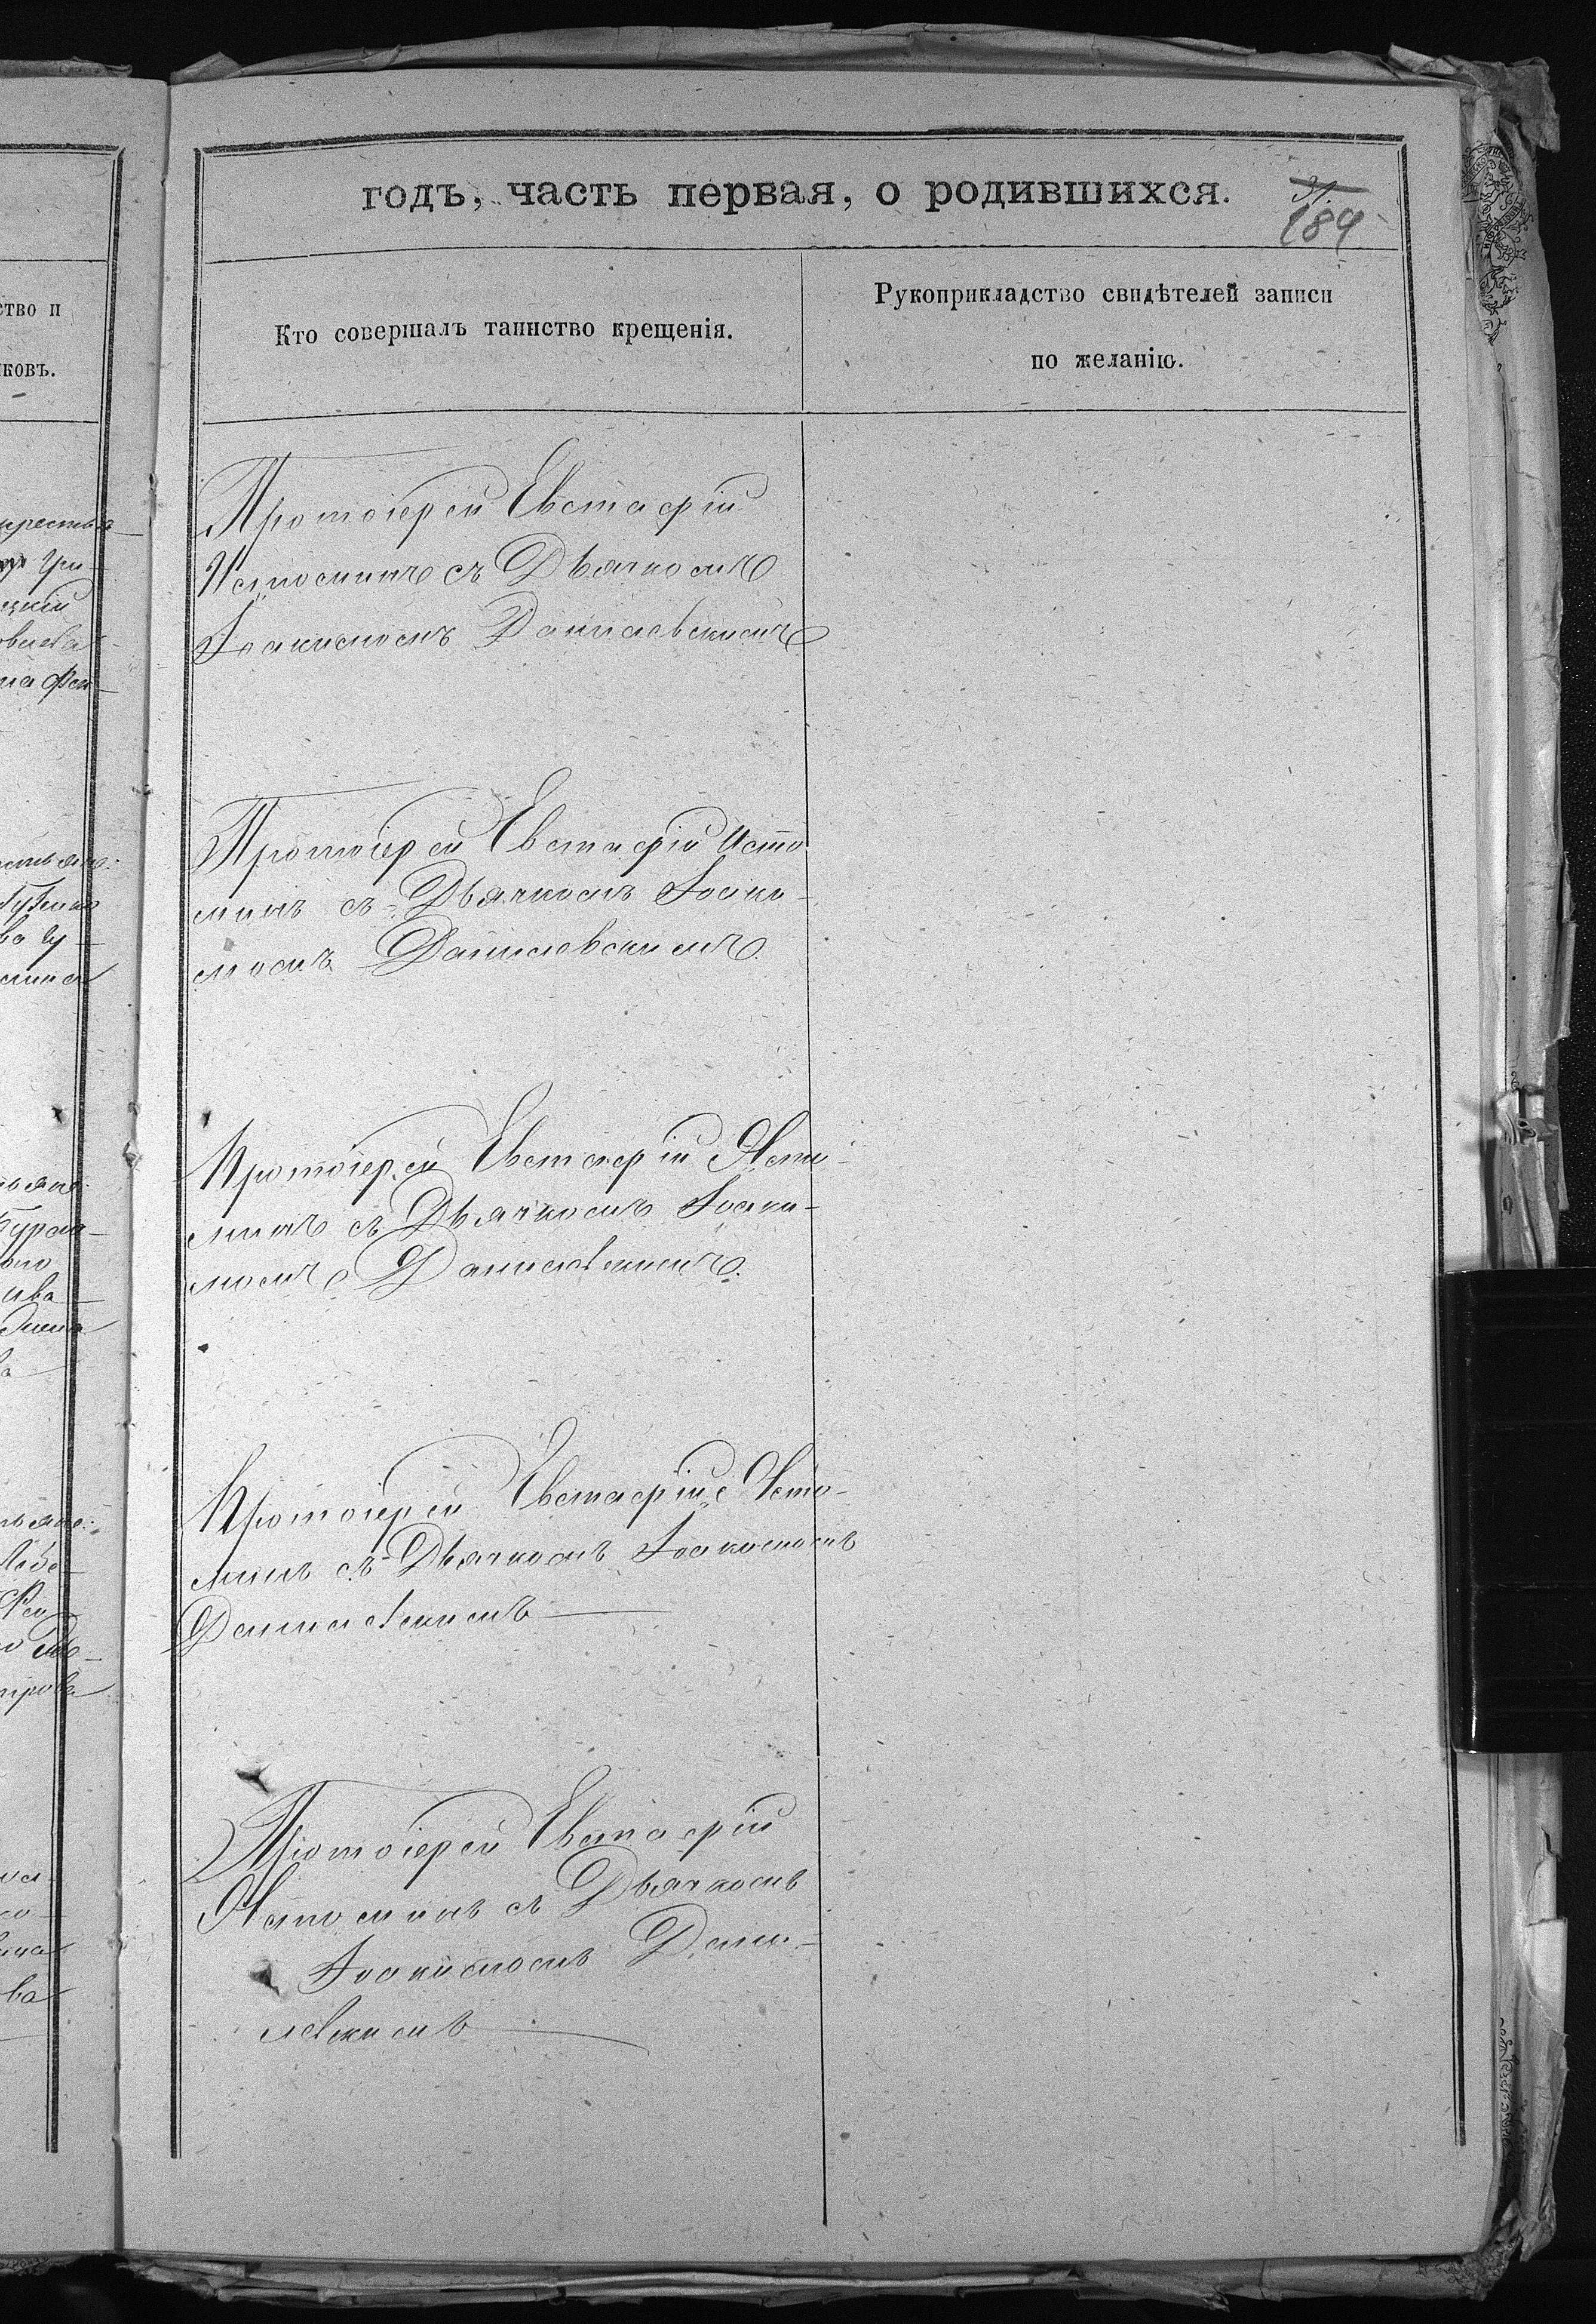 годъ, часть первая, о родившихся.
31.
184
Кто совершалъ таинство крещенія.
Рукоприкладство свидѣтелей записи
по желанію.
ство и
иковъ.
Протоіерей Евстафій
Истоминъ съ Дьячкомъ
Іоакимомъ Данилевскимъ
Протоіерей Евстафій Исто
минъ съ Дьячкомъ Іоаки-
момъ Данилевскимъ.
Протоіерей Евстафій Исто-
минъ съ Дьячкомъ Іоаки-
момъ Данилевскимъ.
Протоіерей Евстафій Исто-
минъ съ Дьячкомъ Іоакимомъ
Данилевскимъ
Протоіерей Евстафій
Истоминъ съ Дьячкомъ
Іоакимомъ Дани-
левскимъ